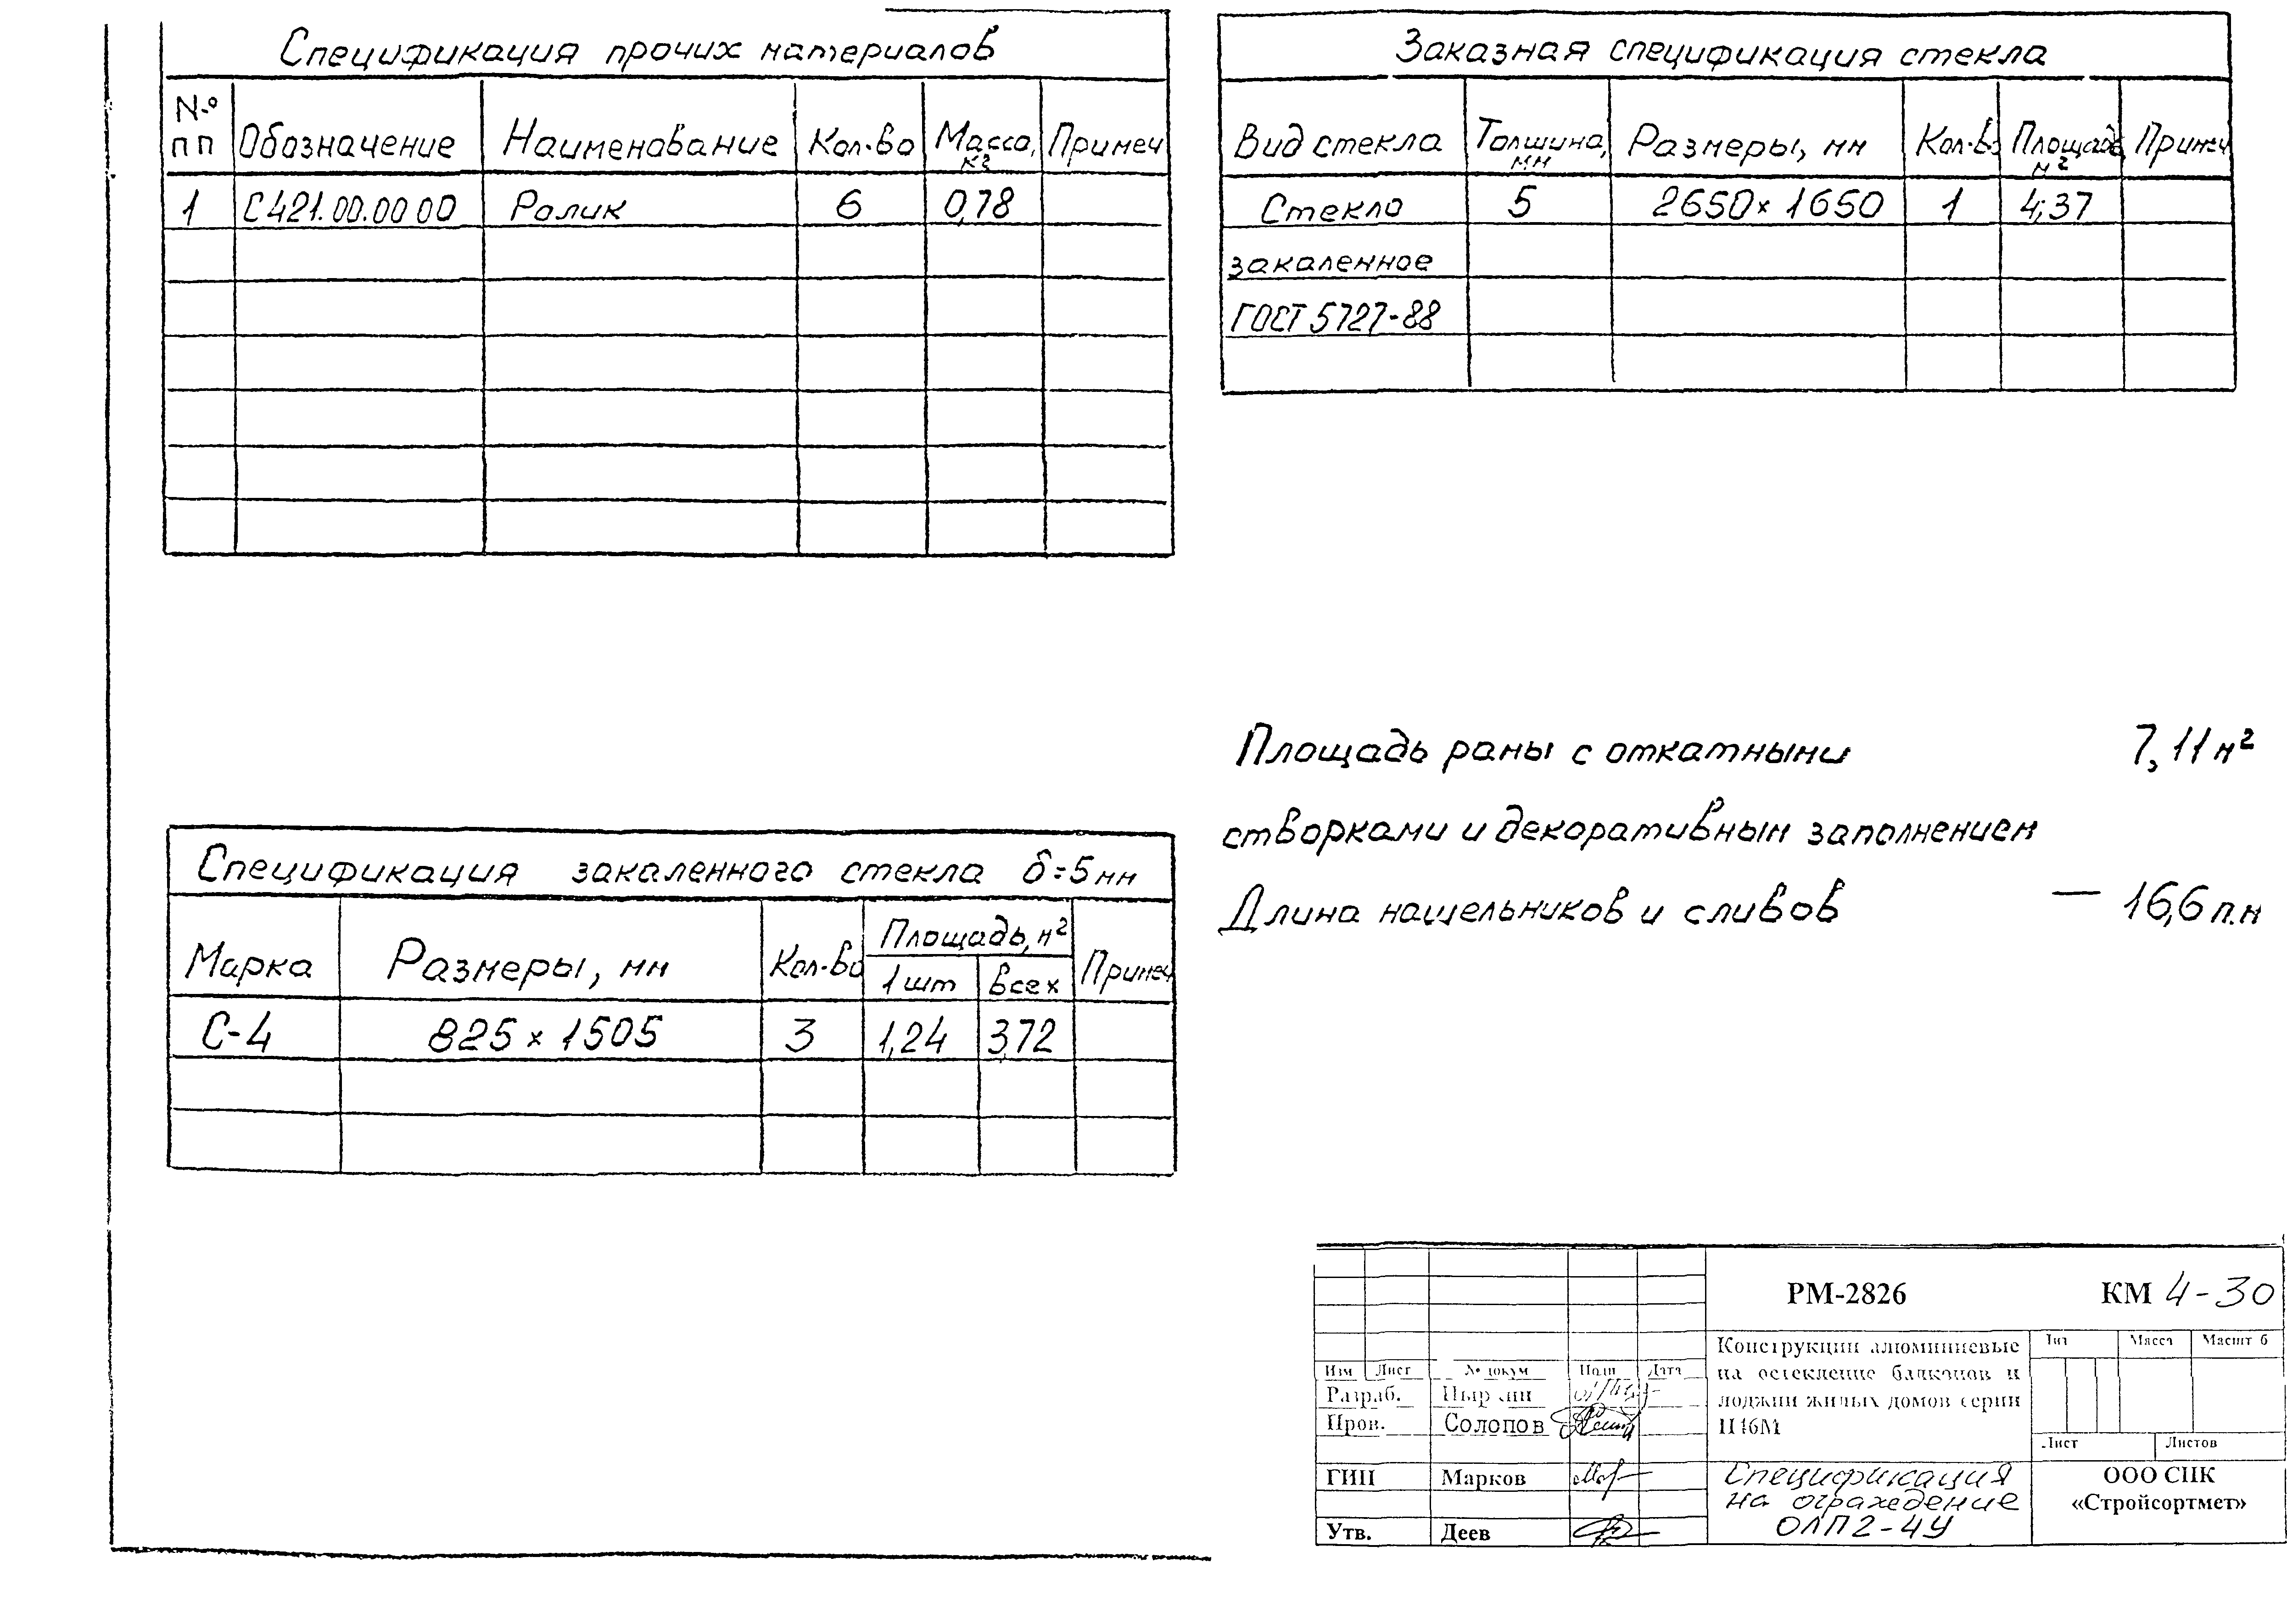 Спецификация прочих материалов
№ пп Обозначение Наименование Кол-во Масса, кг Примеч
1 С421.00.00 00 Ролик 6 0,78
Заказная спецификация стекла
Вид стекла Толщина, мм Размеры, мм Кол-в. Площадь м² Примеч
Стекло 5 2650 × 1650 1 4,37
закаленное
ГОСТ 5727-88
Площадь рамы с откатными 7,11 м²
створками и декоративным заполнением
Длина нащельников и сливов — 16,6 п.м
Спецификация закаленного стекла δ=5мм
Марка Размеры, мм Кол-во Площадь, м² Примеч
1 шт всех
С-4 825 × 1505 3 1,24 3,72
РМ-2826 КМ 4-30
Изм Лист № докум Подп Дата
Разраб.
Пров. Солопов
ГИП Марков
Утв. Деев
Конструкции алюминиевые
на остекление балконов и
лоджии жилых домов серии
П46М
Спецификация
на ограждение
ОЛП2-4У
Лит Масса Масшт б
Лист Листов
ООО СПК
«Стройсортмет»